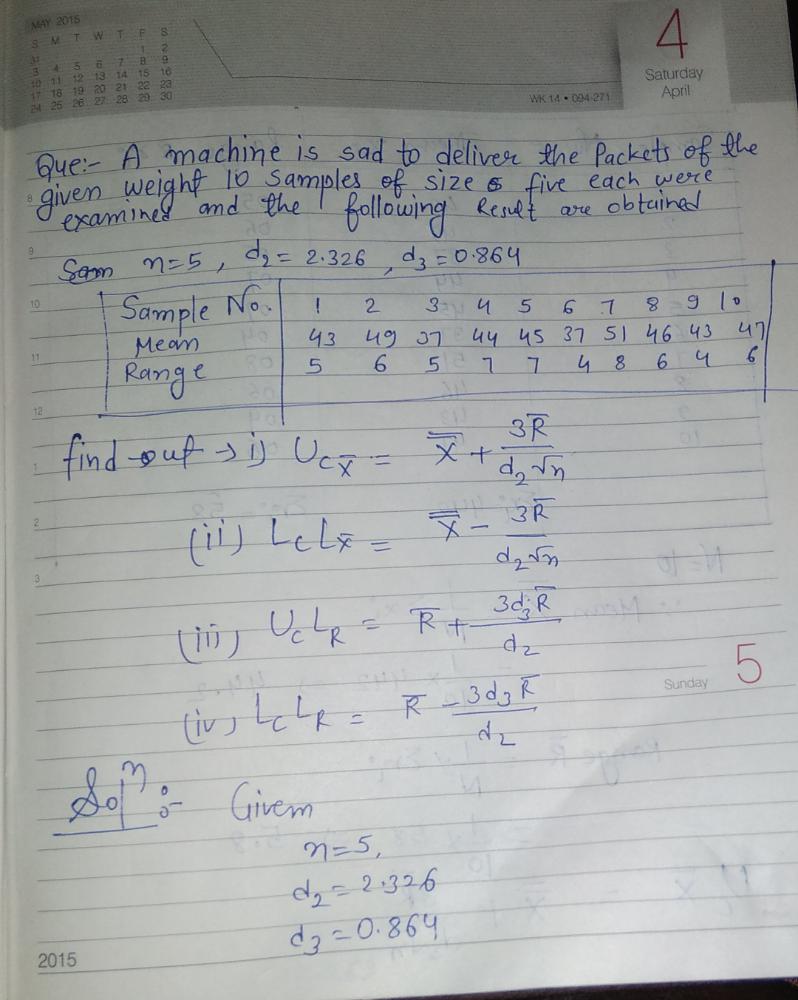 MAY 2015
S M T W T F S
31 1 2
3 4 5 6 7 8 9
10 11 12 13 14 15 16
17 18 19 20 21 22 23
24 25 26 27 28 29 30
4
Saturday
April
WK 14 • 094-271
Que:- A machine is sad to deliver the Packets of the
given weight 10 samples of size five each were
examined and the following Result are obtained
n=5, d₂ = 2.326, d₃ = 0.864
Sample No. 1 2 3 4 5 6 7 8 9 10
Mean 43 49 37 44 45 37 51 46 43 47
Range 5 6 5 7 7 4 8 6 4 6
find out → i) UCX̄ = X̿ + 3R̄ / d₂√n
(ii) LCLX̄ = X̿ - 3R̄ / d₂√n
(iii) UCLR = R̄ + 3d₃R̄ / d₂
(iv) LCLR = R̄ - 3d₃R̄ / d₂
Sunday 5
Solⁿ :- Given
n=5,
d₂ = 2.326
d₃ = 0.864
2015
8
9
10
11
12
1
2
3